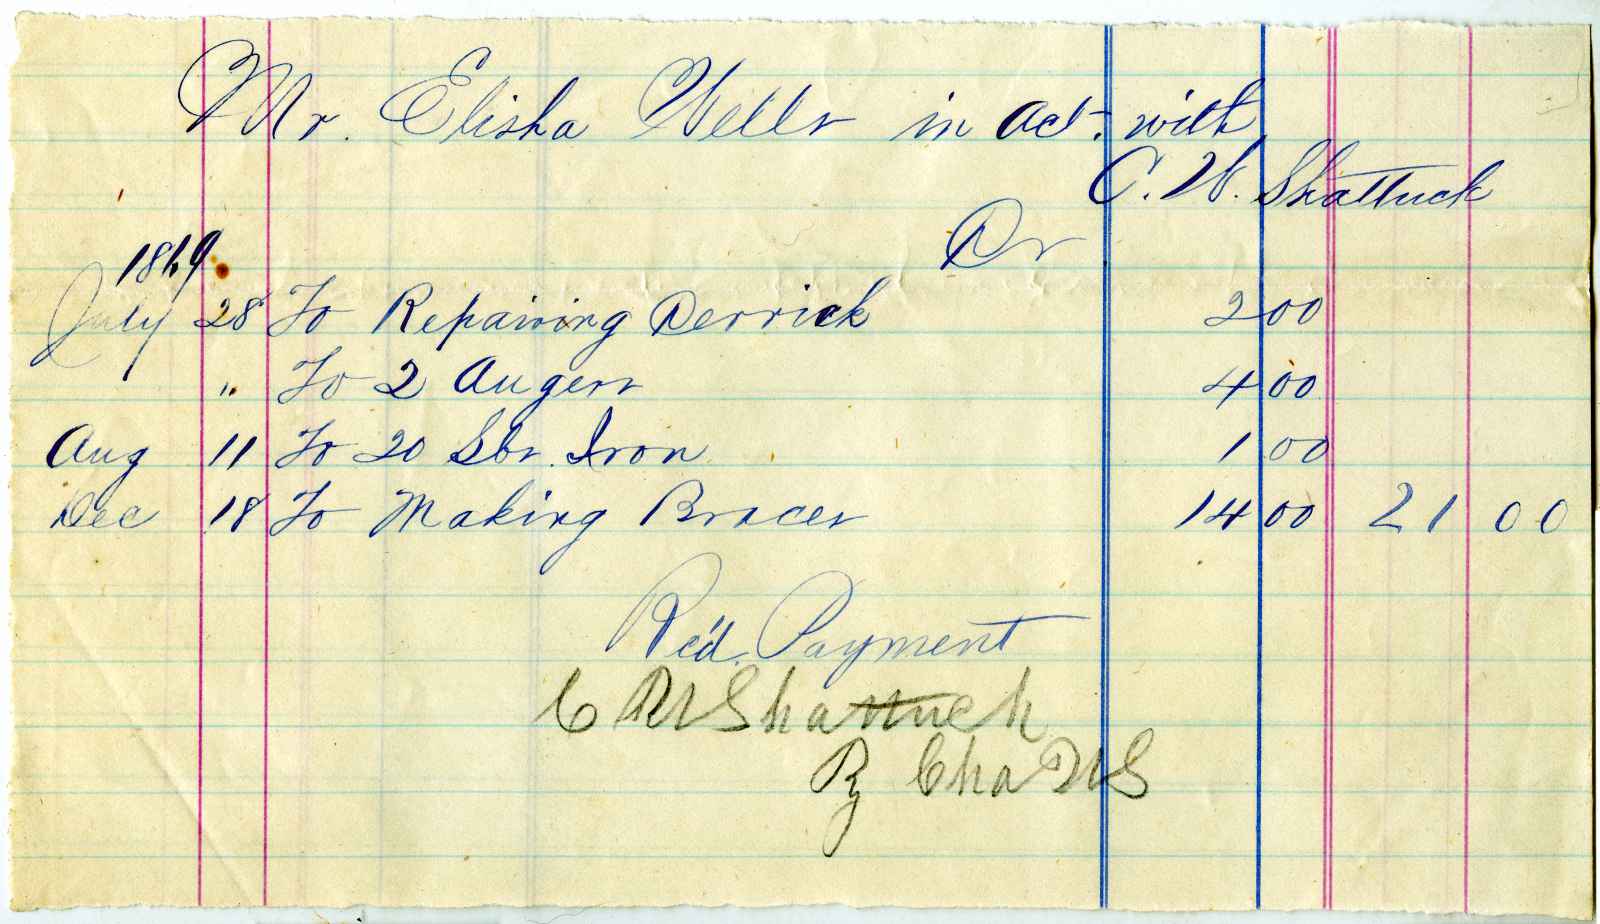 Mr. Elisha Wells in act. with
C. W. Shattuck
Dr
1869
July 28 To Repairing Derrick 2 00
" To 2 Augers 4 00
Aug 11 To 20 Lbs. Iron 1 00
Dec 18 To Making Braces 14 00 21 00
Rc'd. Payment
C W Shattuck
By Cha W S